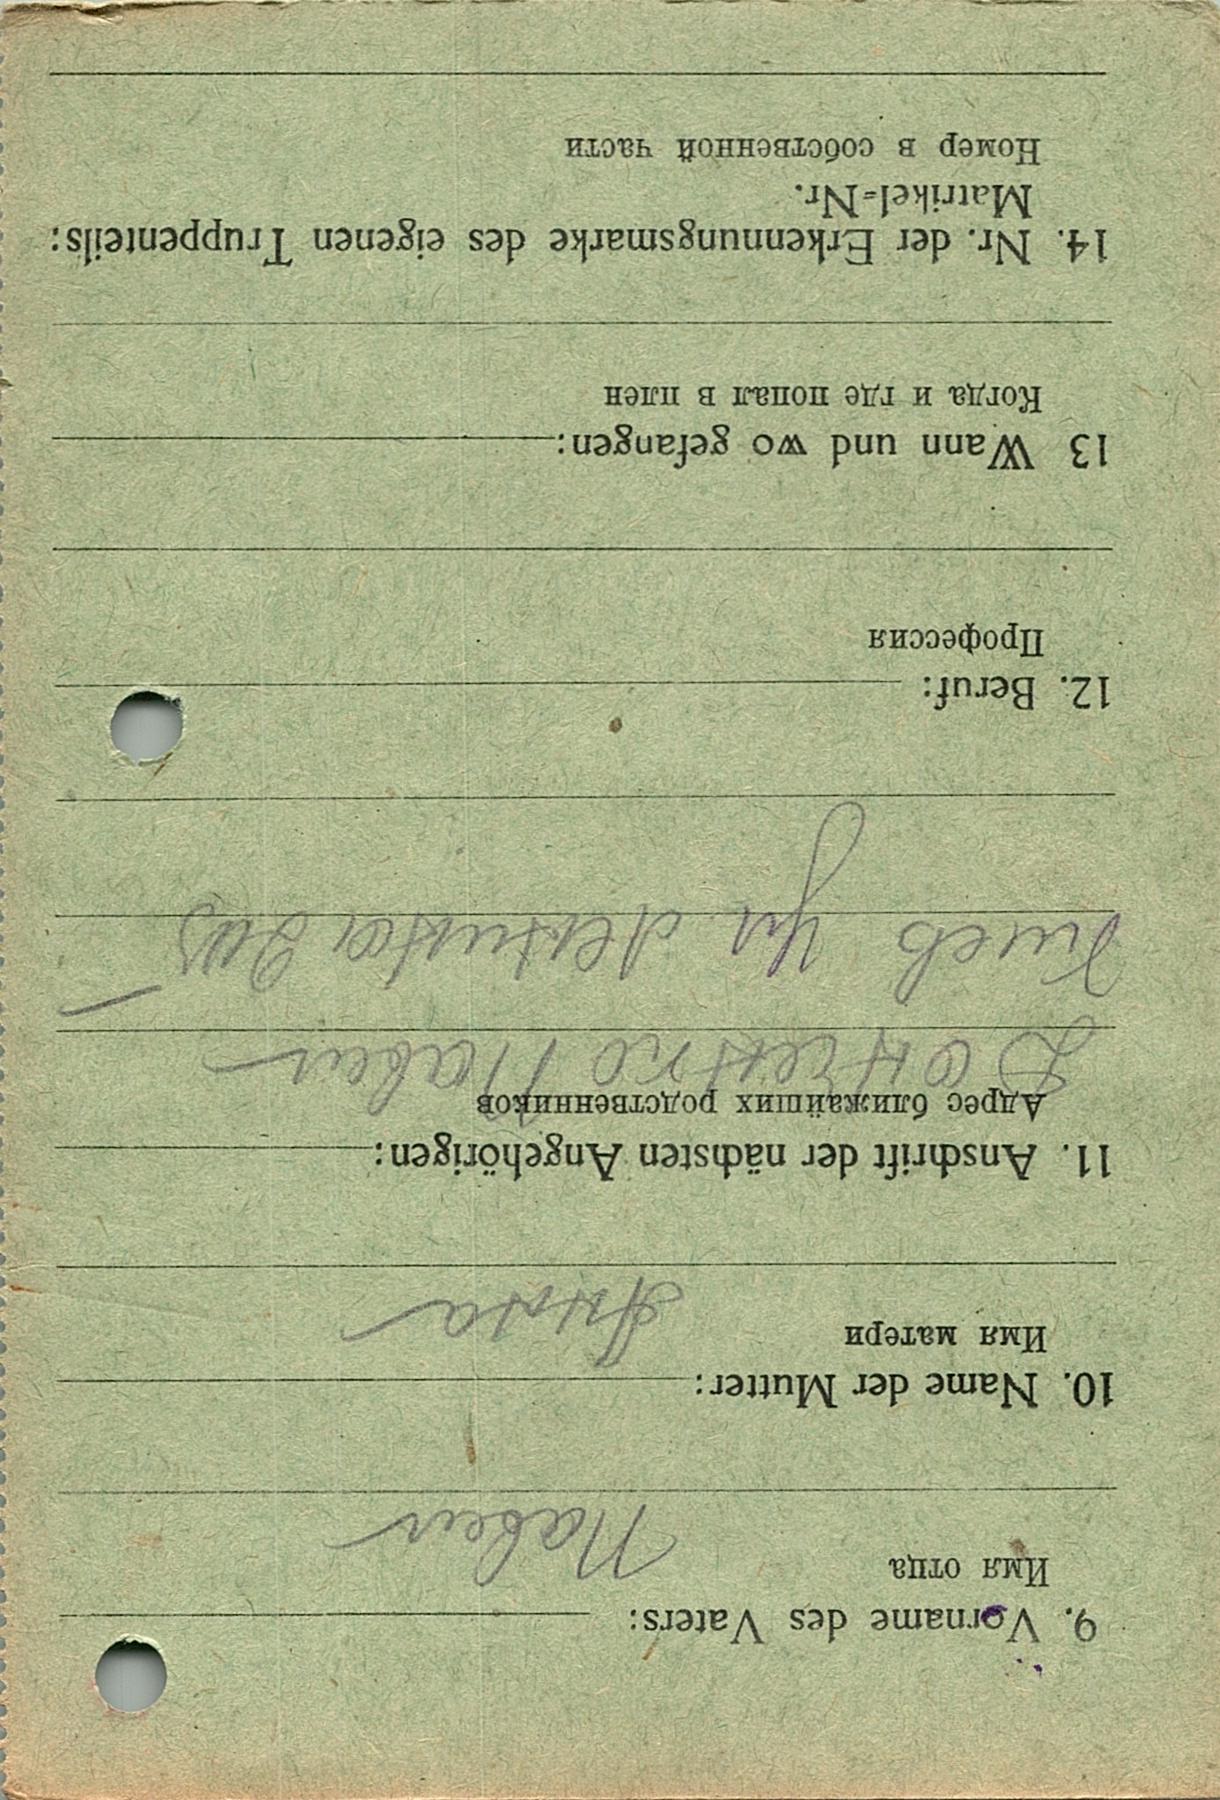 9. Vorname des Vaters:
Имя отца
Павел
10. Name der Mutter:
Имя матери
Анна
11. Anschrift der nächsten Angehörigen:
Адрес ближайших родственников
Павел
Киев Ул
12. Beruf:
Профессия
13 Wann und wo gefangen:
Когда и где попал в плен
14. Nr. der Erkennungsmarke des eigenen Truppenteils:
Matrikel=Nr.
Номер в собственной части